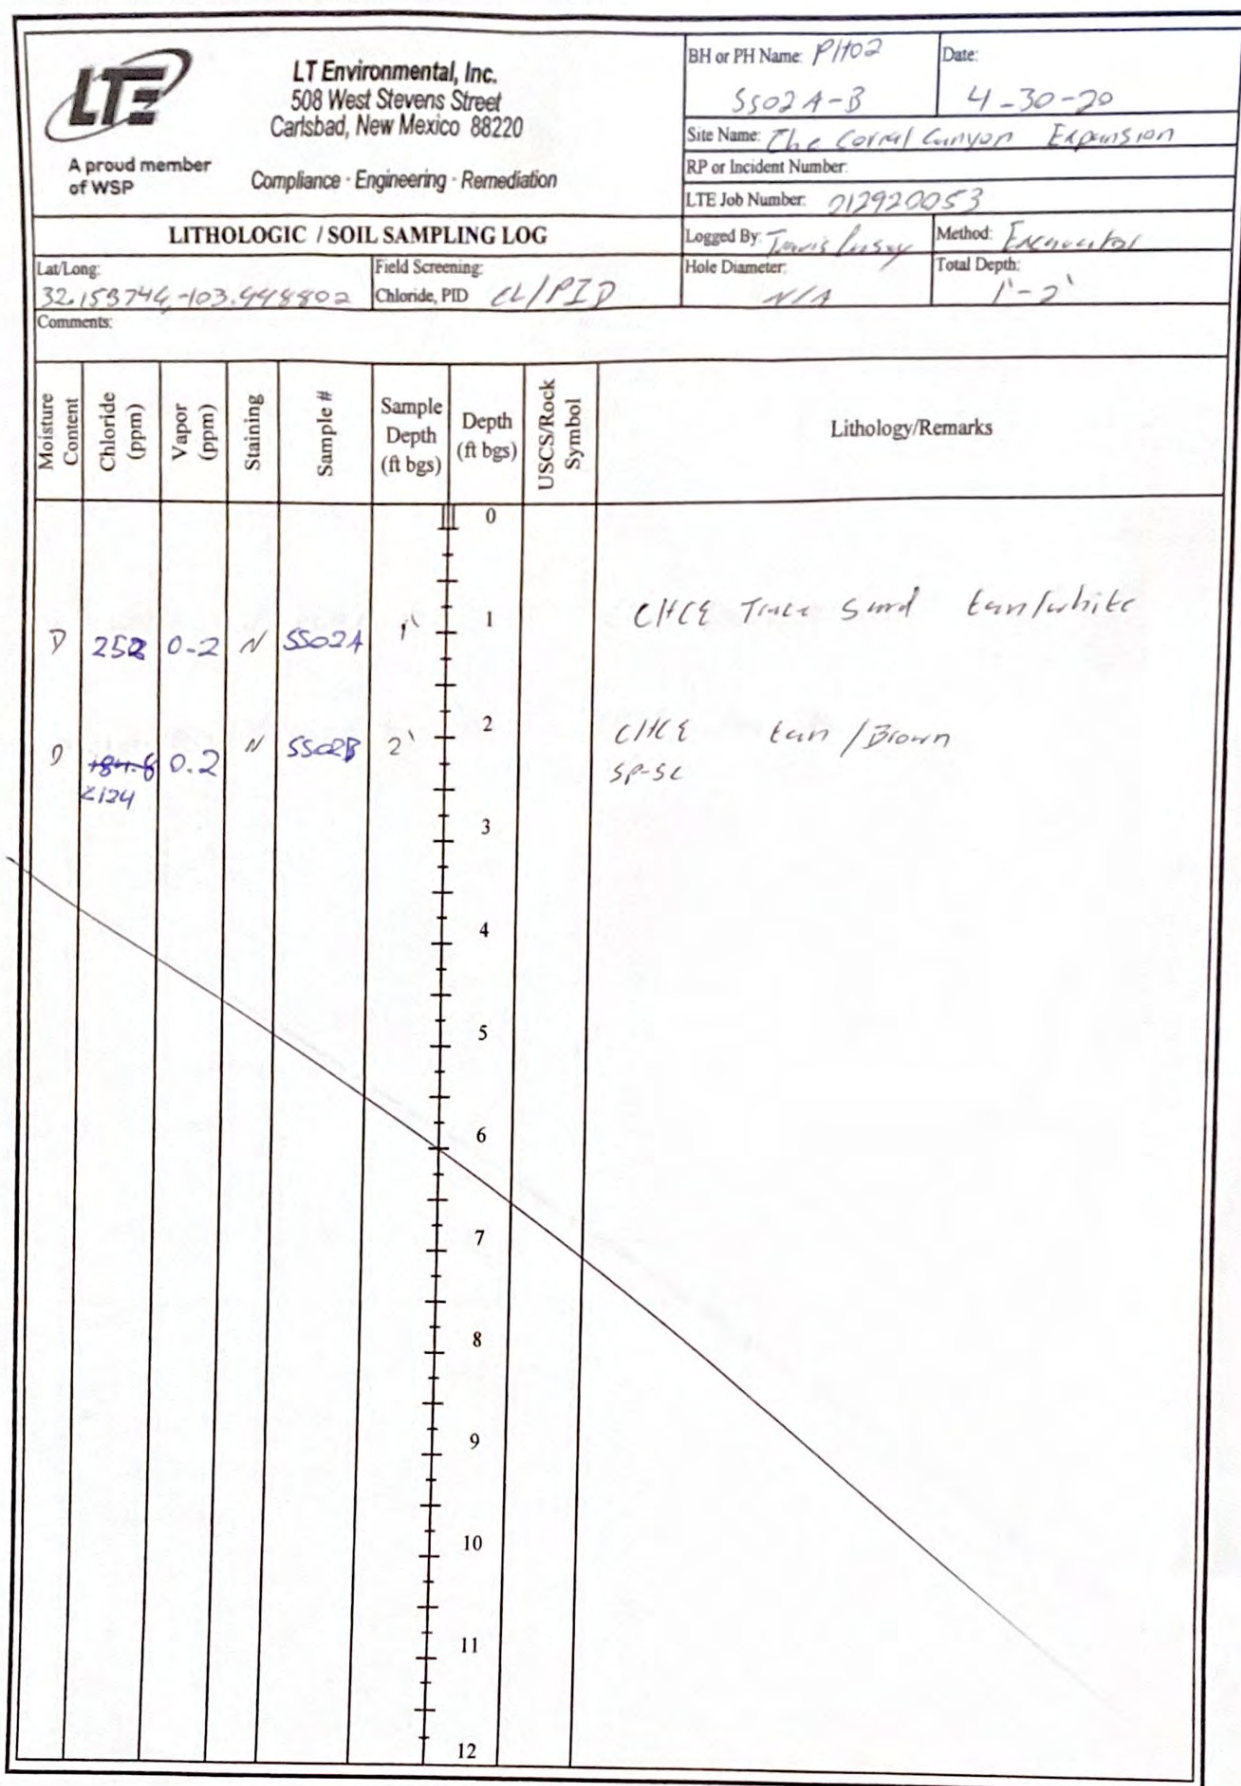 LTE
A proud member
of WSP
LT Environmental, Inc.
508 West Stevens Street
Carlsbad, New Mexico 88220
Compliance · Engineering · Remediation
BH or PH Name: PH02
SS02A-B
Date:
4-30-20
Site Name: The Corral Canyon Expansion
RP or Incident Number:
LTE Job Number: 012920053
LITHOLOGIC / SOIL SAMPLING LOG
Logged By: Travis
Method: Excavator
Lat/Long:
32.153746,-103.948802
Field Screening:
Chloride, PID CL/PID
Hole Diameter:
N/A
Total Depth:
1'-2'
Comments:
Moisture Content
Chloride (ppm)
Vapor (ppm)
Staining
Sample #
Sample Depth (ft bgs)
Depth (ft bgs)
USCS/Rock Symbol
Lithology/Remarks
0
D 252 0.2 N SS02A 1' 1 CHCE Trace Sand tan/white
D 184.8 0.2 N SS02B 2' 2 CHCE tan/Brown
<124 SP-SC
3
4
5
6
7
8
9
10
11
12